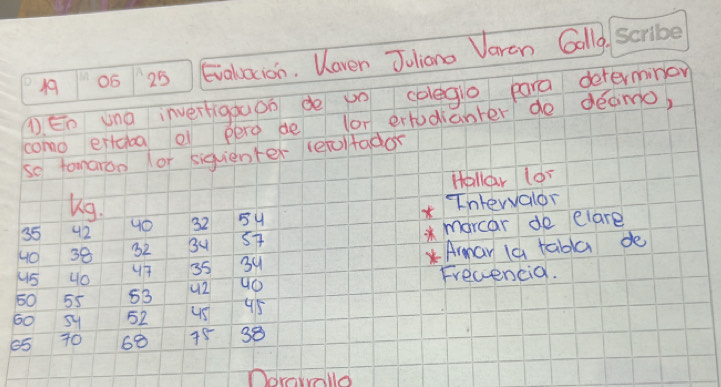 19 05 25 Evaluación. Karen Juliana Varon Gallo. Scribe
1). En una invertigauon de un colegio para determinar
como ertaba el pero de lor ertudianter de décimo,
se tomaron lor siguienter reroltador
Kg.
35 42 40 32 54
40 38 32 34 57
45 40 47 35 34
50 55 53 42 40
60 54 52 45 45
65 70 68 75 38
Hallar lor
* Intervalor
* marcar de clare
* Armar la tabla de
Frecuencia.
Derarrollo